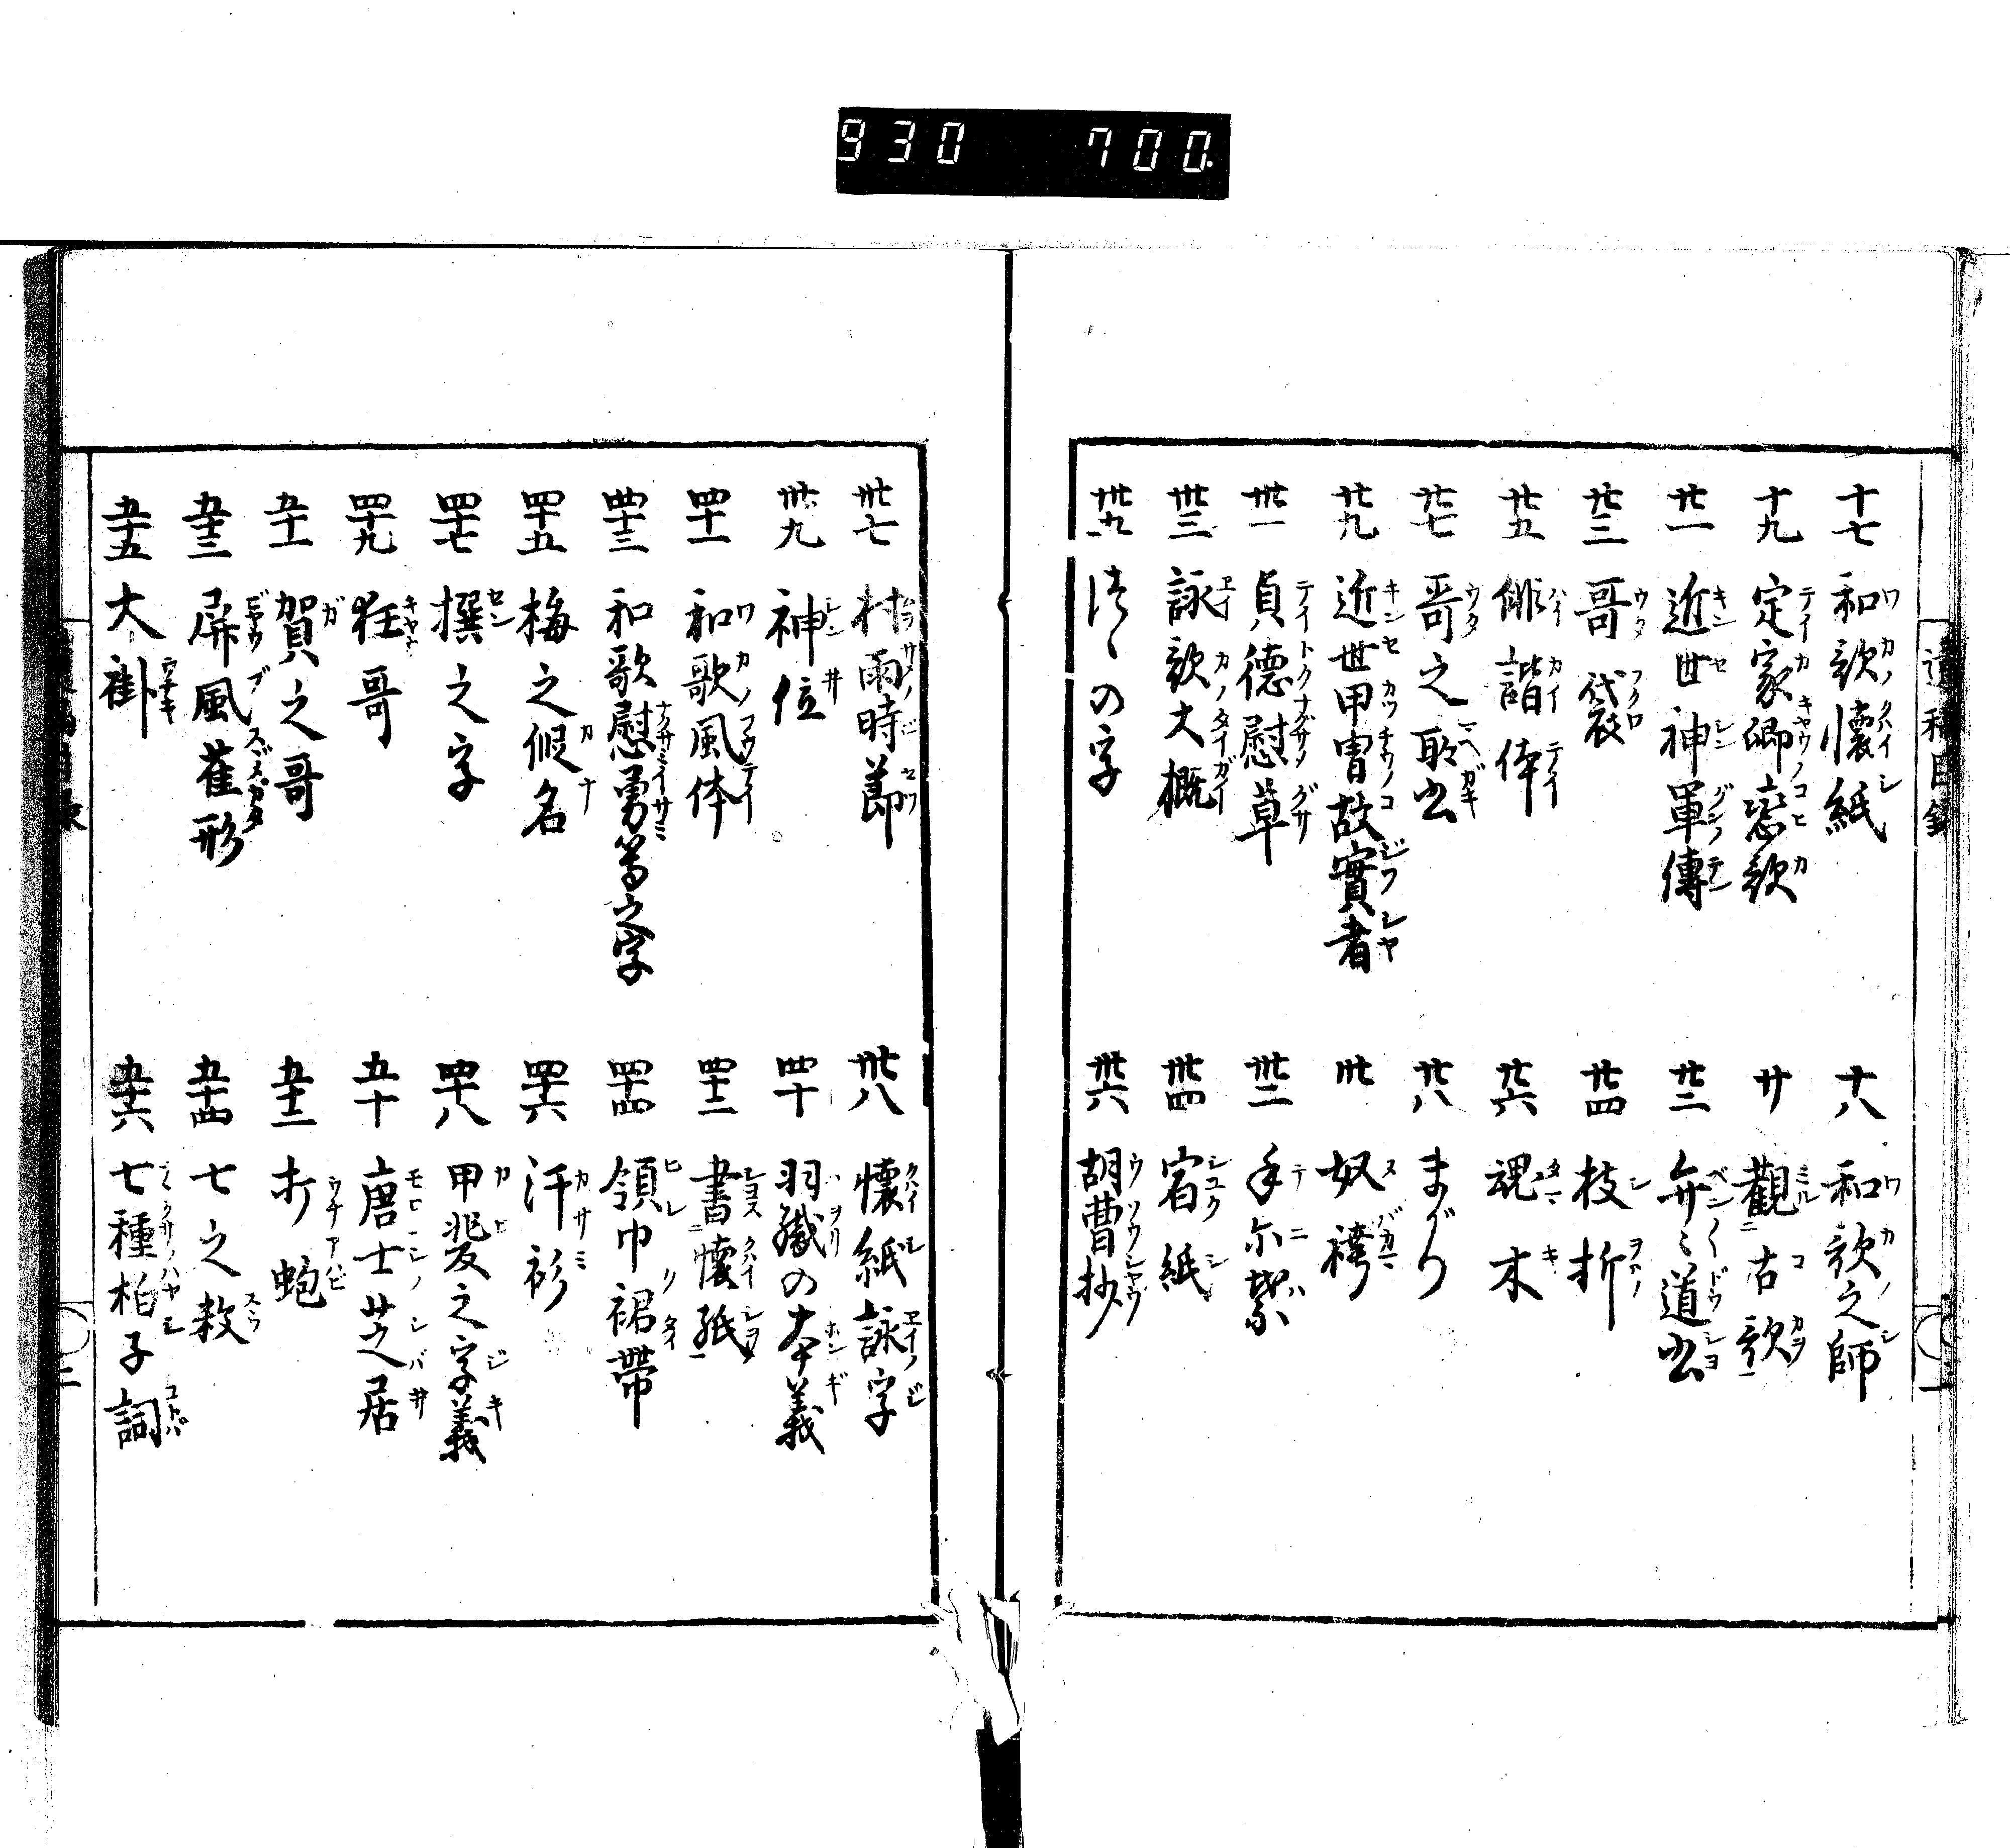 930 700.
遺稿目録
十七 和歌懐紙
十八 和歌之師
十九 定家卿恋歌
廿 觀古歌
廿一 近世神軍傳
廿二 弁々道書
廿三 哥袋
廿四 枝折
廿五 俳諧体
廿六 魂木
廿七 哥之聠書
廿八 まがり
廿九 近世甲冑故實者
卅 奴袴
卅一 貞德慰草
卅二 手尓葉
卅三 詠歌大概
卅四 宿紙
卅五 つゝの字
卅六 胡曹抄
卅七 村雨時節
卅八 懷紙詠字
卅九 神位
四十 羽織の本義
四十一 和歌風体
四十二 書懐紙
四十三 和歌慰勇等之字
四十四 領巾裙帶
四十五 梅之假名
四十六 汗衫
四十七 撰之字
四十八 甲斐之字義
四十九 狂哥
五十 唐士芝居
五十一 賀之哥
五十二 打蚫
五十三 屏風雀形
五十四 七之数
五十五 大褂
五十六 七種柏子詞